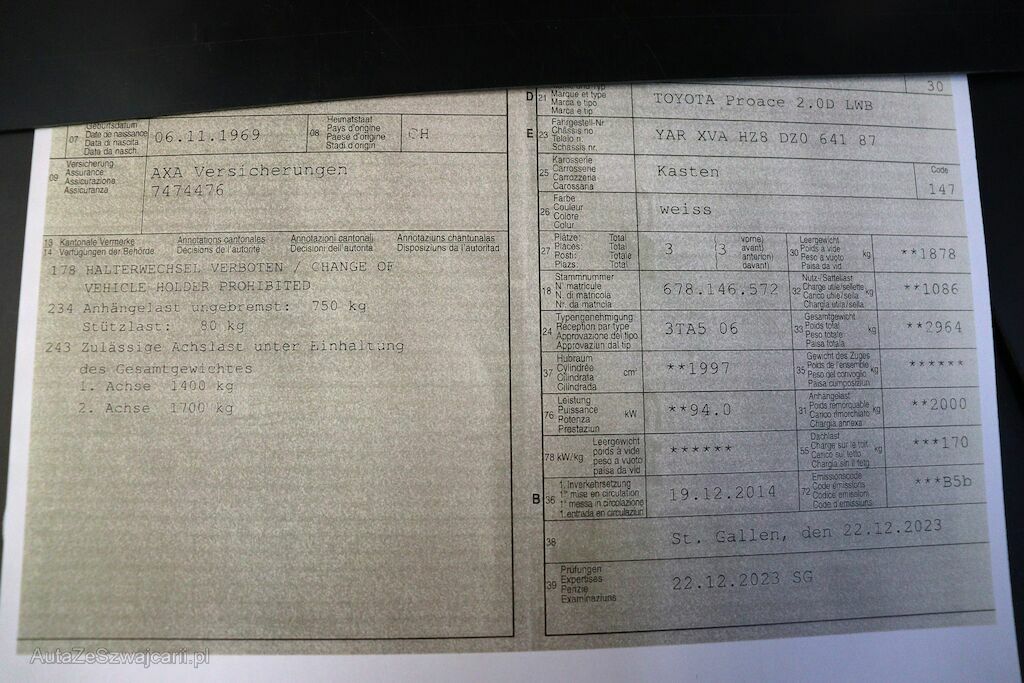 07 Geburtsdatum
Date de naissance
Data di nascita
Data da nasch.
06.11.1969
08 Heimatstaat
Pays d'origine
Paese d'origine
Stadi d'origin
CH
09 Versicherung
Assurance
Assicurazione
Assicuranza
AXA Versicherungen
7474476
13 Kantonale Vermerke Annotations cantonales Annotazioni cantonali Annotaziuns chantunalas
14 Verfügungen der Behörde Décisions de l'autorité Decisioni dell'autorità Disposiziuns da l'autoritad
178 HALTERWECHSEL VERBOTEN / CHANGE OF
VEHICLE HOLDER PROHIBITED
234 Anhängelast ungebremst: 750 kg
Stützlast: 80 kg
243 Zulässige Achslast unter Einhaltung
des Gesamtgewichtes
1. Achse 1400 kg
2. Achse 1700 kg
30
D 21 Marque et type
Marca e tipo
Marca e tip
TOYOTA Proace 2.0D LWB
E 23 Fahrgestell-Nr
Châssis no
Telaio n.
Schassis nr.
YAR XVA HZ8 DZ0 641 87
25 Karosserie
Carrosserie
Carrozzeria
Carossaria
Kasten
Code
147
26 Farbe
Couleur
Colore
Colur
weiss
27 Plätze: Total
Places: Total
Posti: Totale
Plazs: Total
3 (3 vorne)
avant)
anteriori)
davant)
30 Leergewicht
Poids à vide
Peso a vuoto
Paisa da vid
kg
**1878
18 Stammnummer
N° matricule
N. di matricola
Nr. da matricla
678.146.572
32 Nutz-/Sattellast
Charge utile/sellette
Carico utile/sella
Chargia utila/sella
kg
**1086
24 Typengenehmigung
Réception par type
Approvazione del tipo
Approvaziun dal tip
3TA5 06
33 Gesamtgewicht
Poids total
Peso totale
Paisa totala
kg
**2964
37 Hubraum
Cylindrée
Cilindrata
Cilindrada
cm³
**1997
35 Gewicht des Zuges
Poids de l'ensemble
Peso del convoglio
Paisa cumposiziun
kg
******
76 Leistung
Puissance
Potenza
Prestaziun
kW
**94.0
31 Anhängelast
Poids remorquable
Carico rimorchiato
Chargia annexa
kg
**2000
78 kW/kg Leergewicht
poids à vide
peso a vuoto
paisa da vid
******
55 Dachlast
Charge sur le toit
Carico sul tetto
Chargia sin il tetg
kg
***170
B 36 1. Inverkehrsetzung
1re mise en circulation
1a messa in circolazione
1. entrada en circulaziun
19.12.2014
72 Emissionscode
Code émissions
Codice emissioni
Code d'emissiuns
***B5b
38 St. Gallen, den 22.12.2023
39 Prüfungen
Expertises
Perizie
Examinaziuns
22.12.2023 SG
AutaZeSzwajcarii.pl